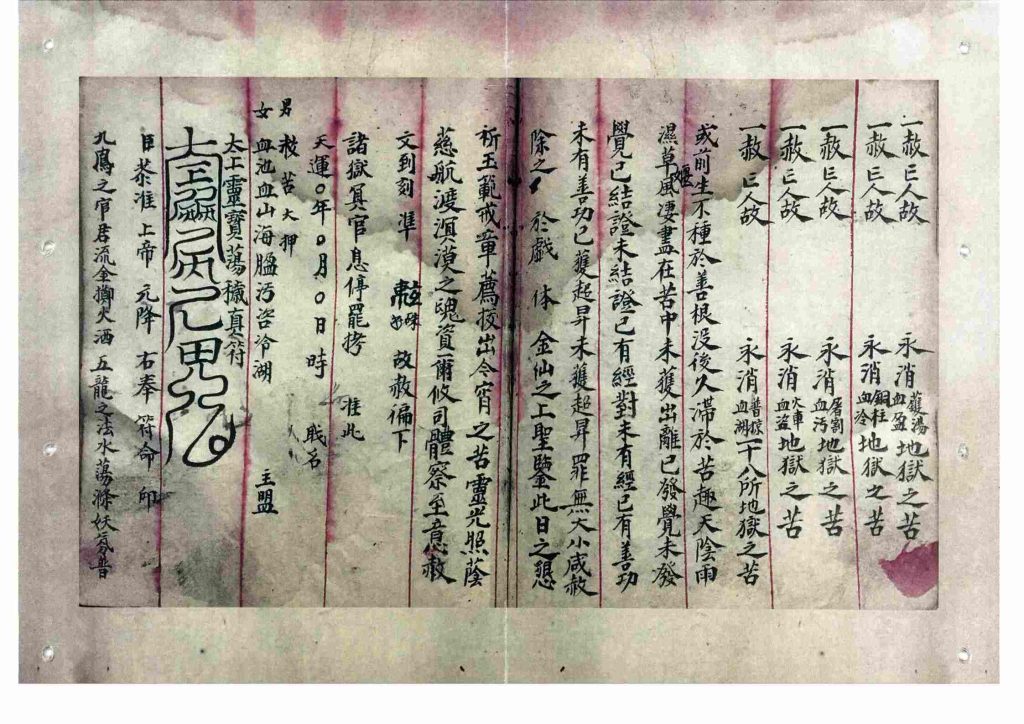 一赦亡人故 永消 鑊湯 血盈 地獄之苦
一赦亡人故 永消 銅柱 血冷 地獄之苦
一赦亡人故 永消 屠割 血污 地獄之苦
一赦亡人故 永消 火車 血盆 地獄之苦
一赦亡人故 永消 普掠 血湖 一十八所地獄之苦
或前生不種於善根沒後久滯於苦趣天陰雨
濕草風淒盡在苦中未獲出離已發覺未發
覺已結證未結證已有經對未有經已有善功
未有善功已獲起昇未獲超昇罪無大小咸赦
除之 於戲 体 金仙之上聖鑒此日之懇
祈玉範戒章薦拔出今宵之苦靈光照蔭
慈航渡溟漠之魂資爾攸司體察至意赦
文到刻準 故赦徧下
諸獄冥官息停罷拷 准此
天運〇年〇月〇日 時 職名
男女 救苦大押
血池血山海膃污咨冷湖 主盟
太上靈寶蕩穢真符
臣恭准 上帝 元降 右奉 符命 印
九鳳之 君流金擲火酒 五龍之法水蕩滌妖氛普